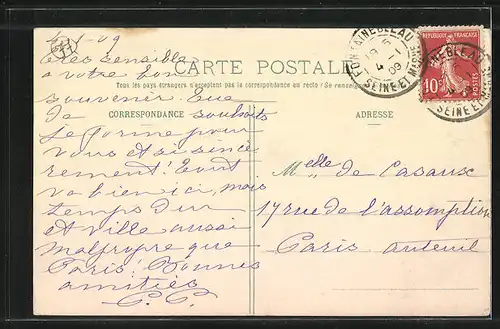 4-1-09
CARTE POSTALE
Tous les pays étrangers n'acceptent pas la correspondance au recto (Se renseigner
CORRESPONDANCE
ADRESSE
Très sensible
a votre bon
souvenir. Que
de souhaits
je forme pour
vous et si sincè
rement! Tout
va bien ici, mais
temps dur
et ville aussi
malpropre que
Paris! Bonnes
amitiés
C. C.
Melle de Casaux
17 rue de l'assomption
Paris auteuil
FONTAINEBLEAU
SEINE ET MARNE
REPUBLIQUE FRANÇAISE
10c
POSTES
NEBLEAU
SEINE ET